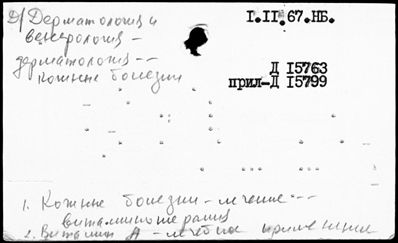 Д/ Дерматология и
венерология -
дерматология --
кожные болезни
I.II.67.НБ.
Д I5763
прил-Д I5799
1. Кожные болезни - лечение --
витаминотерапия
2. Витамин А - лечебное применение